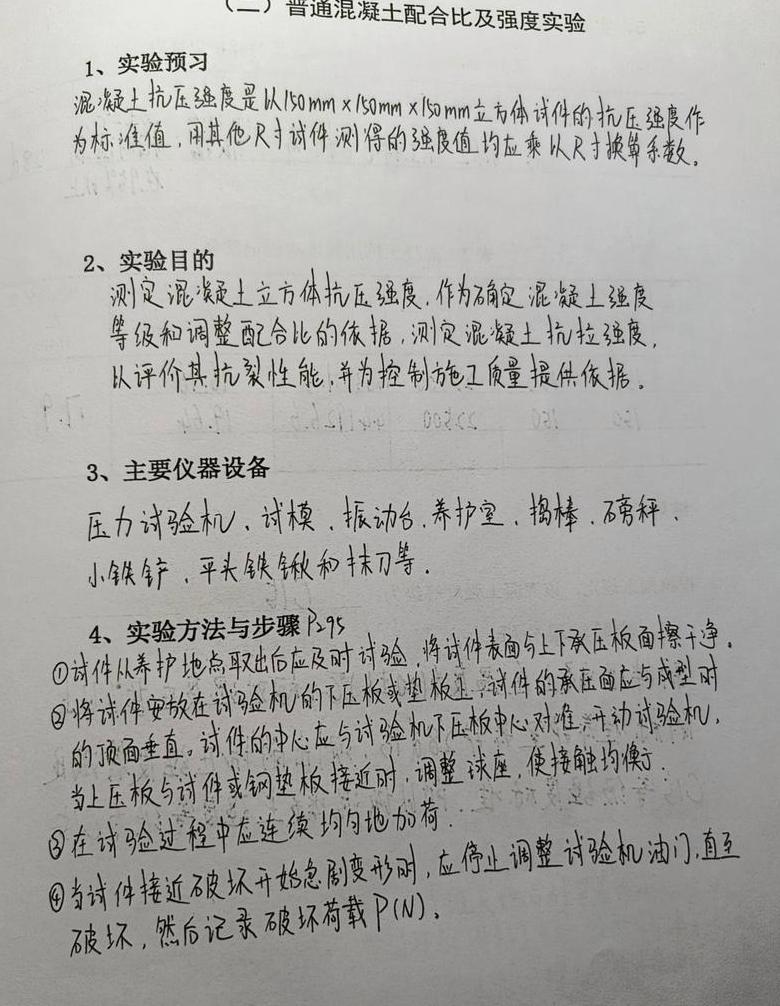 (二) 普通混凝土配合比及强度实验
1、实验预习
混凝土抗压强度是以150mm×150mm×150mm立方体试件的抗压强度作
为标准值，用其他尺寸试件测得的强度值均应乘以尺寸换算系数。
2、实验目的
测定混凝土立方体抗压强度，作为确定混凝土强度
等级和调整配合比的依据，测定混凝土抗拉强度，
以评价其抗裂性能，并为控制施工质量提供依据。
3、主要仪器设备
压力试验机、试模、振动台、养护室、捣棒、磅秤、
小铁铲、平头铁锹和抹刀等.
4、实验方法与步骤 P295
①试件从养护地点取出后应及时试验，将试件表面与上下承压板面擦干净.
②将试件安放在试验机的下压板或垫板上，试件的承压面应与成型时
的顶面垂直。试件的中心应与试验机下压板中心对准，开动试验机，
当上压板与试件或钢垫板接近时，调整球座，使接触均衡.
③在试验过程中应连续均匀地加荷.
④当试件接近破坏开始急剧变形时，应停止调整试验机油门，直至
破坏，然后记录破坏荷载P(N)。